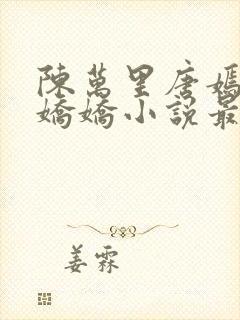 陳萬里唐嫣
嬌嬌小說最
姜霖